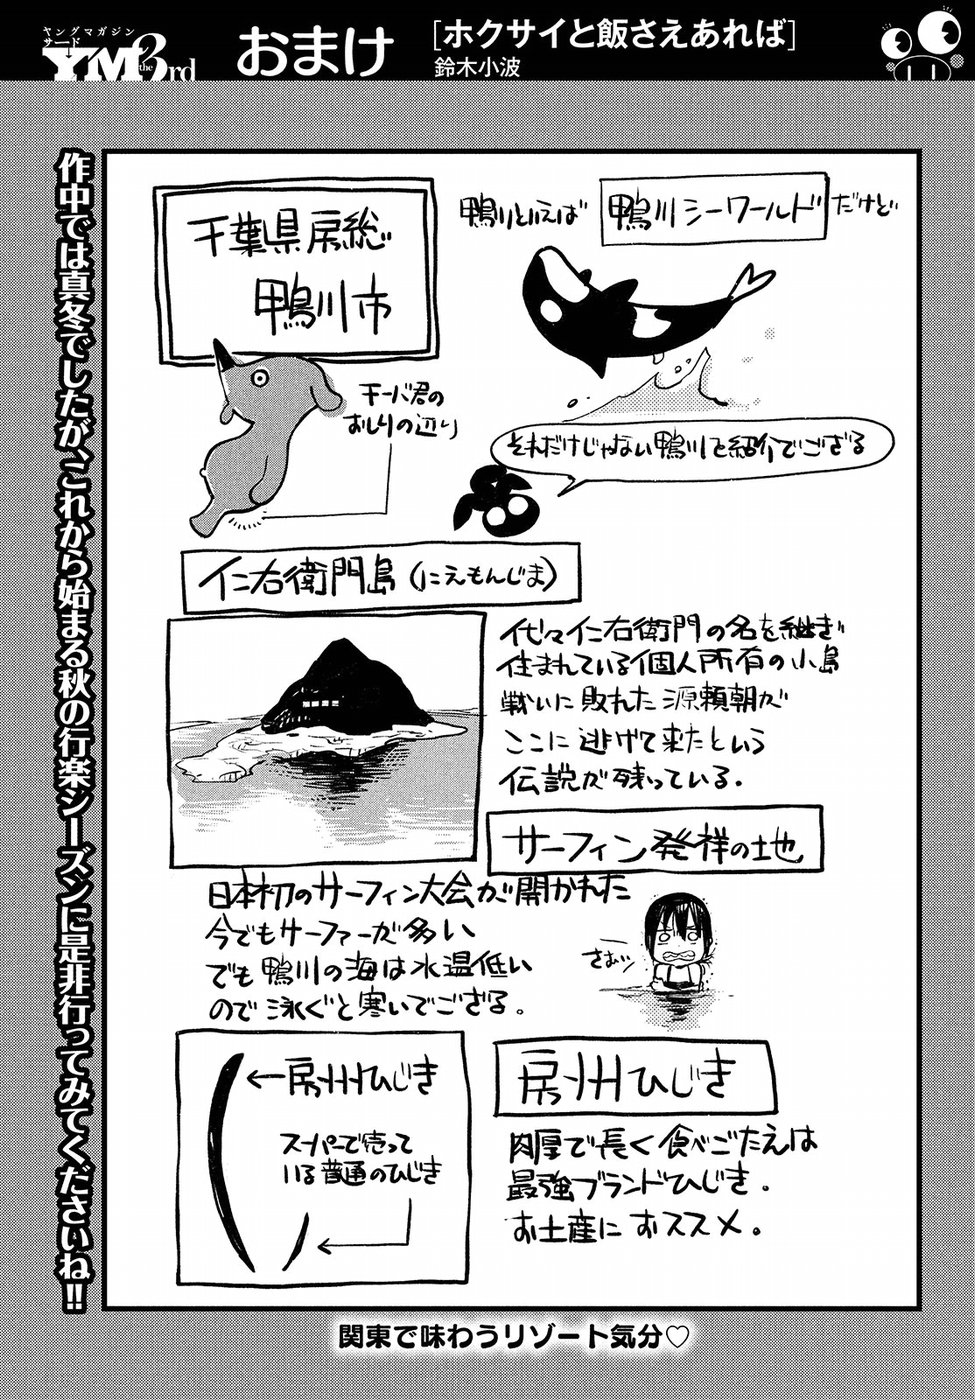 ヤングマガジン
サード
YM the 3rd
おまけ
[ホクサイと飯さえあれば]
鈴木小波
作中では真冬でしたが、これから始まる秋の行楽シーズンに是非行ってみてくださいね!!
千葉県房総
鴨川市
鴨川といえば 鴨川シーワールド だけど
チーバ君の
おしりの辺り
それだけじゃない鴨川を紹介でござる
仁右衛門島(にえもんじま)
代々仁右衛門の名を継ぎ
住まれている個人所有の小島
戦いに敗れた源頼朝が
ここに逃げて来たという
伝説が残っている.
サーフィン発祥の地
日本初のサーフィン大会が開かれた
今でもサーファーが多い
でも鴨川の海は水温低い
ので泳ぐと寒いでござる。
さむッ
←房州ひじき
スーパーで売って
いる普通のひじき
房州ひじき
肉厚で長く食べごたえは
最強ブランドひじき.
お土産におススメ。
関東で味わうリゾート気分♡